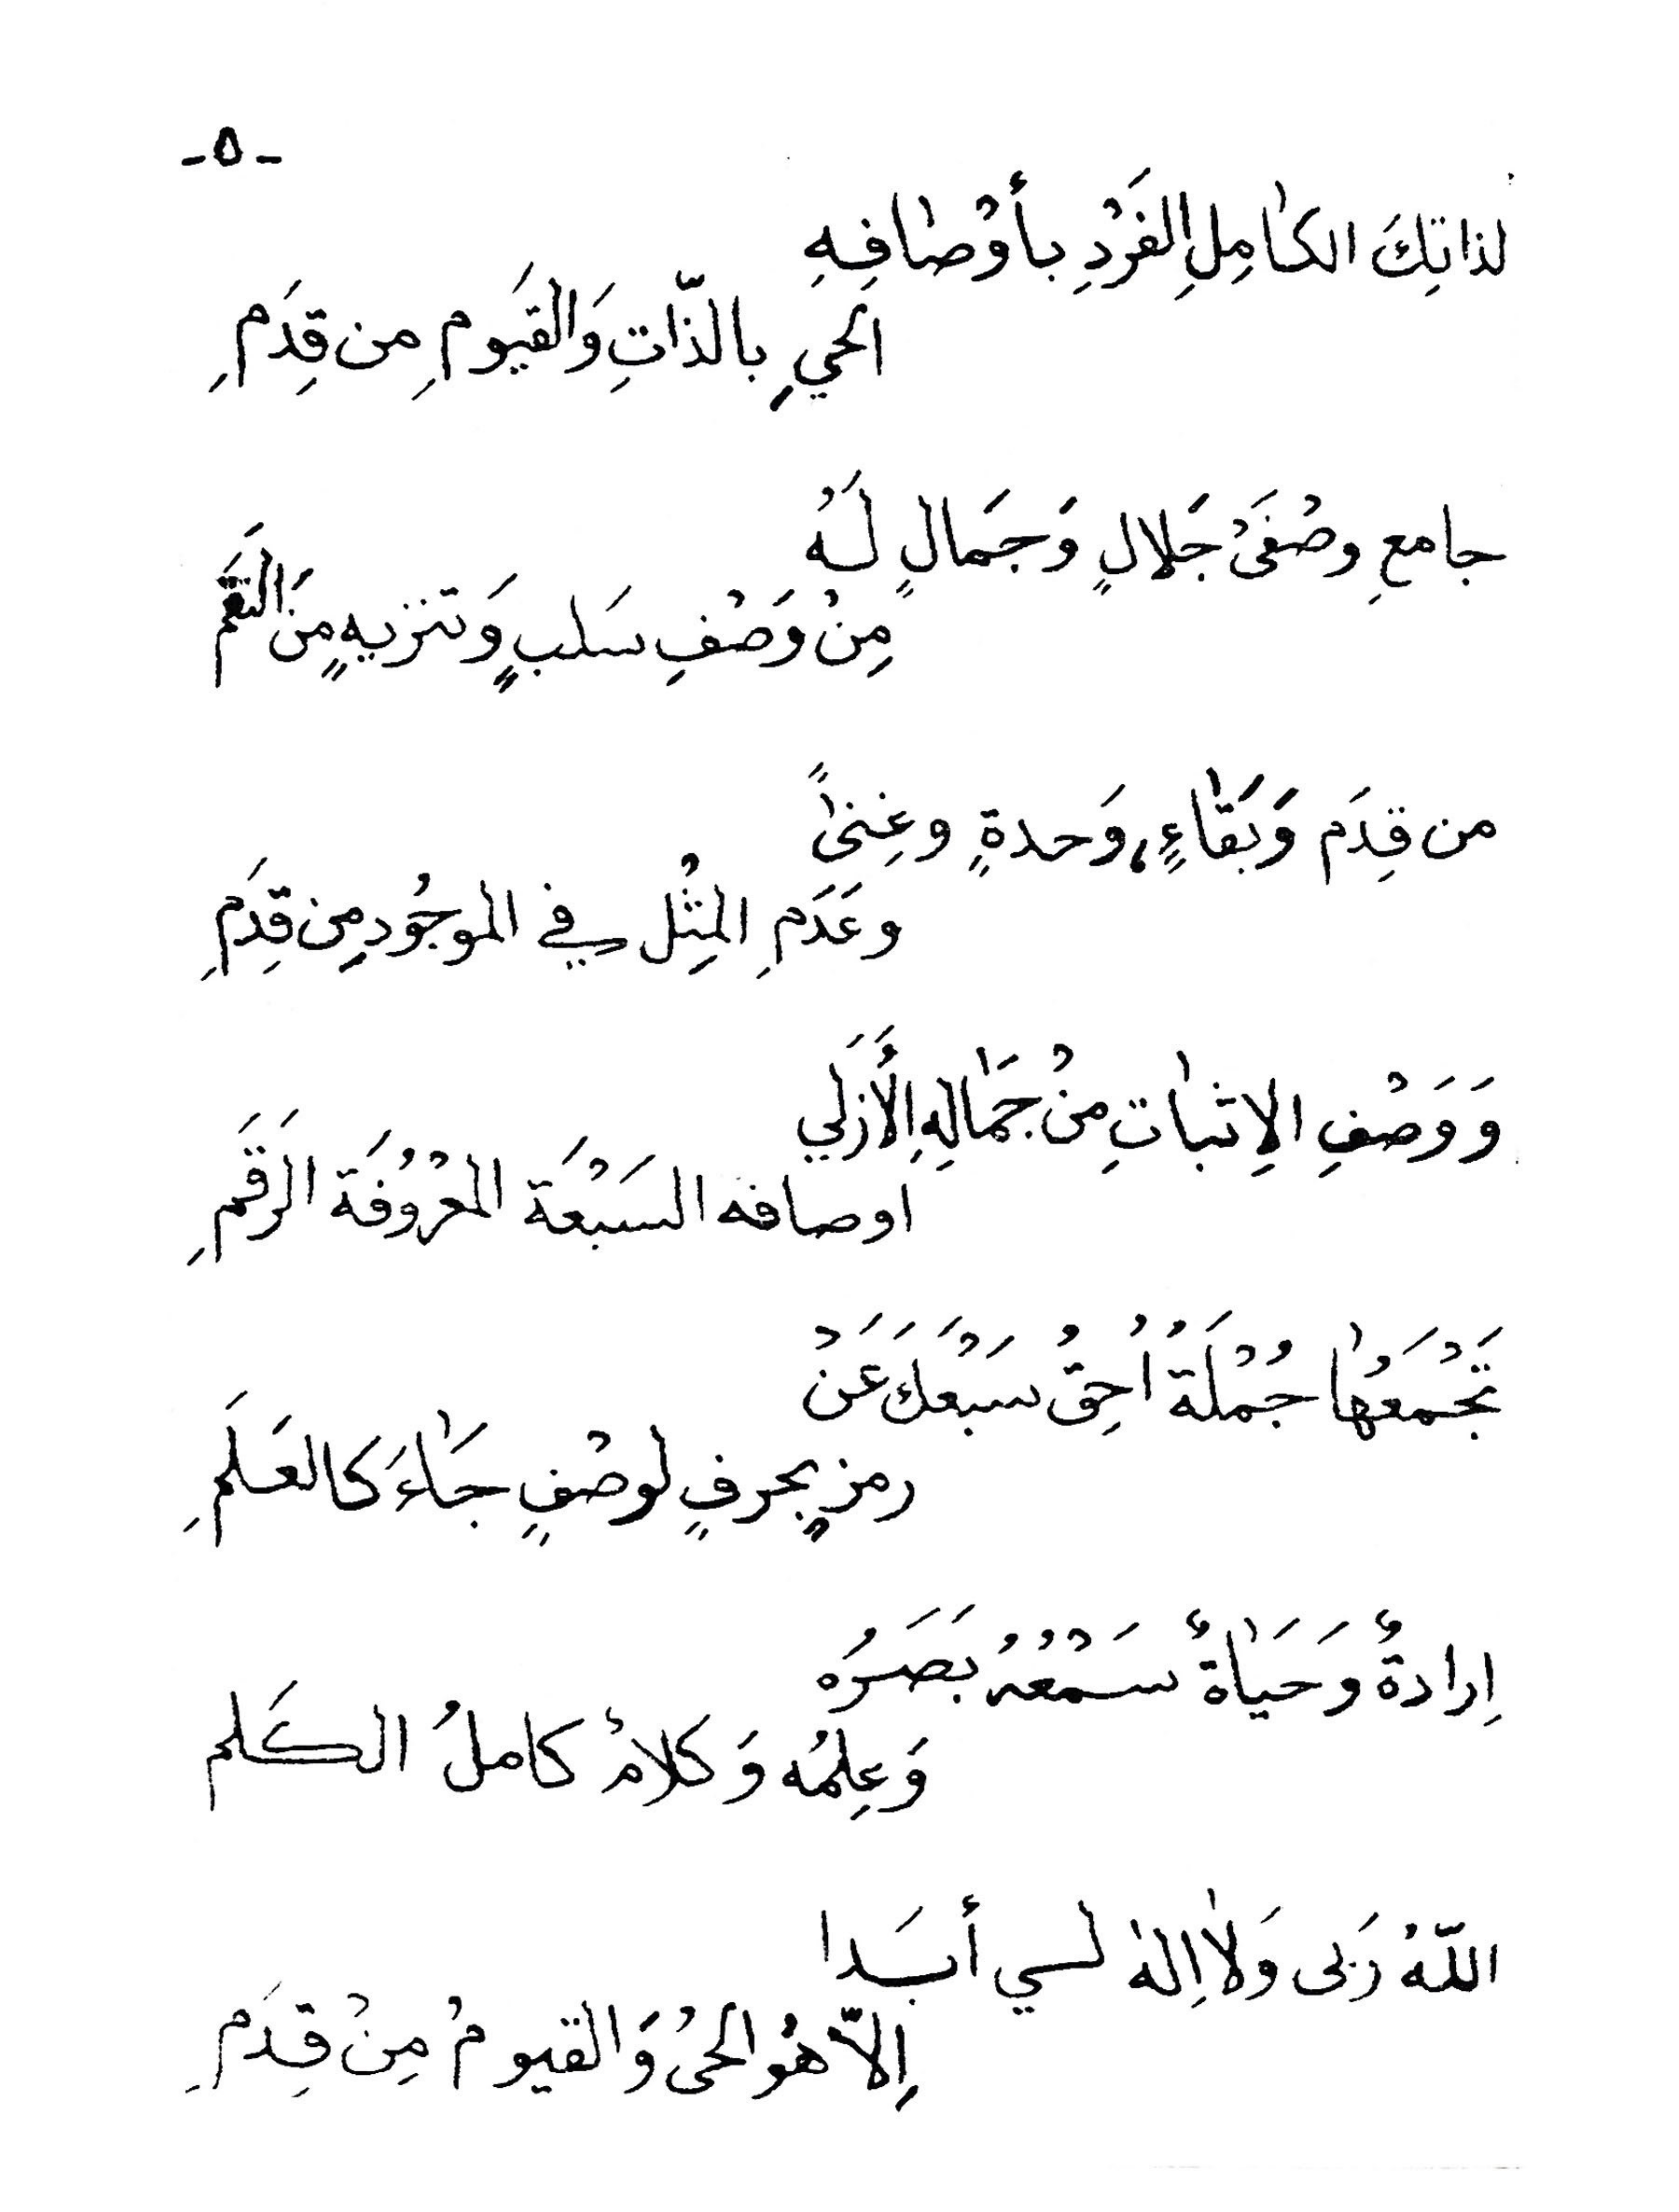 -٥-
لذاتِكَ الكامِلِ الفَرْدِ بأوْصافِهِ
الحيِ بالذّاتِ وَالقيَومِ مِن قِدَمِ
جامعِ وصْفَىْ جَلالٍ وَجَمالٍ لَهُ
مِنْ وَصْفِ سَلبٍ وَتنزيهٍ مِنَ
من قِدَم وَبَقاءٍ، وَحدةٍ وغِنىً
وعَدَمِ المِثْل في الموجُود مِن قِدَمِ
وَوَصْفِ الاِثباتِ مِنْ جَمَالِهِ الأَزَلي
اوصافه السَبْعَة المعْرُوفَة الرَقَمِ
تَجْمَعُها جُمْلَةُ اُحِقُ سَبْعُكَ عَنْ
رمزٍ بحرفٍ لوصْفٍ جَاءَ كالعَلَمِ
اِرادةٌ وَحَيَاةٌ سَمْعُهُ بَصَرُه
وَعِلمُه وَكلامٌ كاملُ الكَلم
اللّهُ رَبى وَلا اِلهٰ لسي أبَدا
اِلاّ هُو الحىُ وَالقيومُ مِنْ قِدَمِ